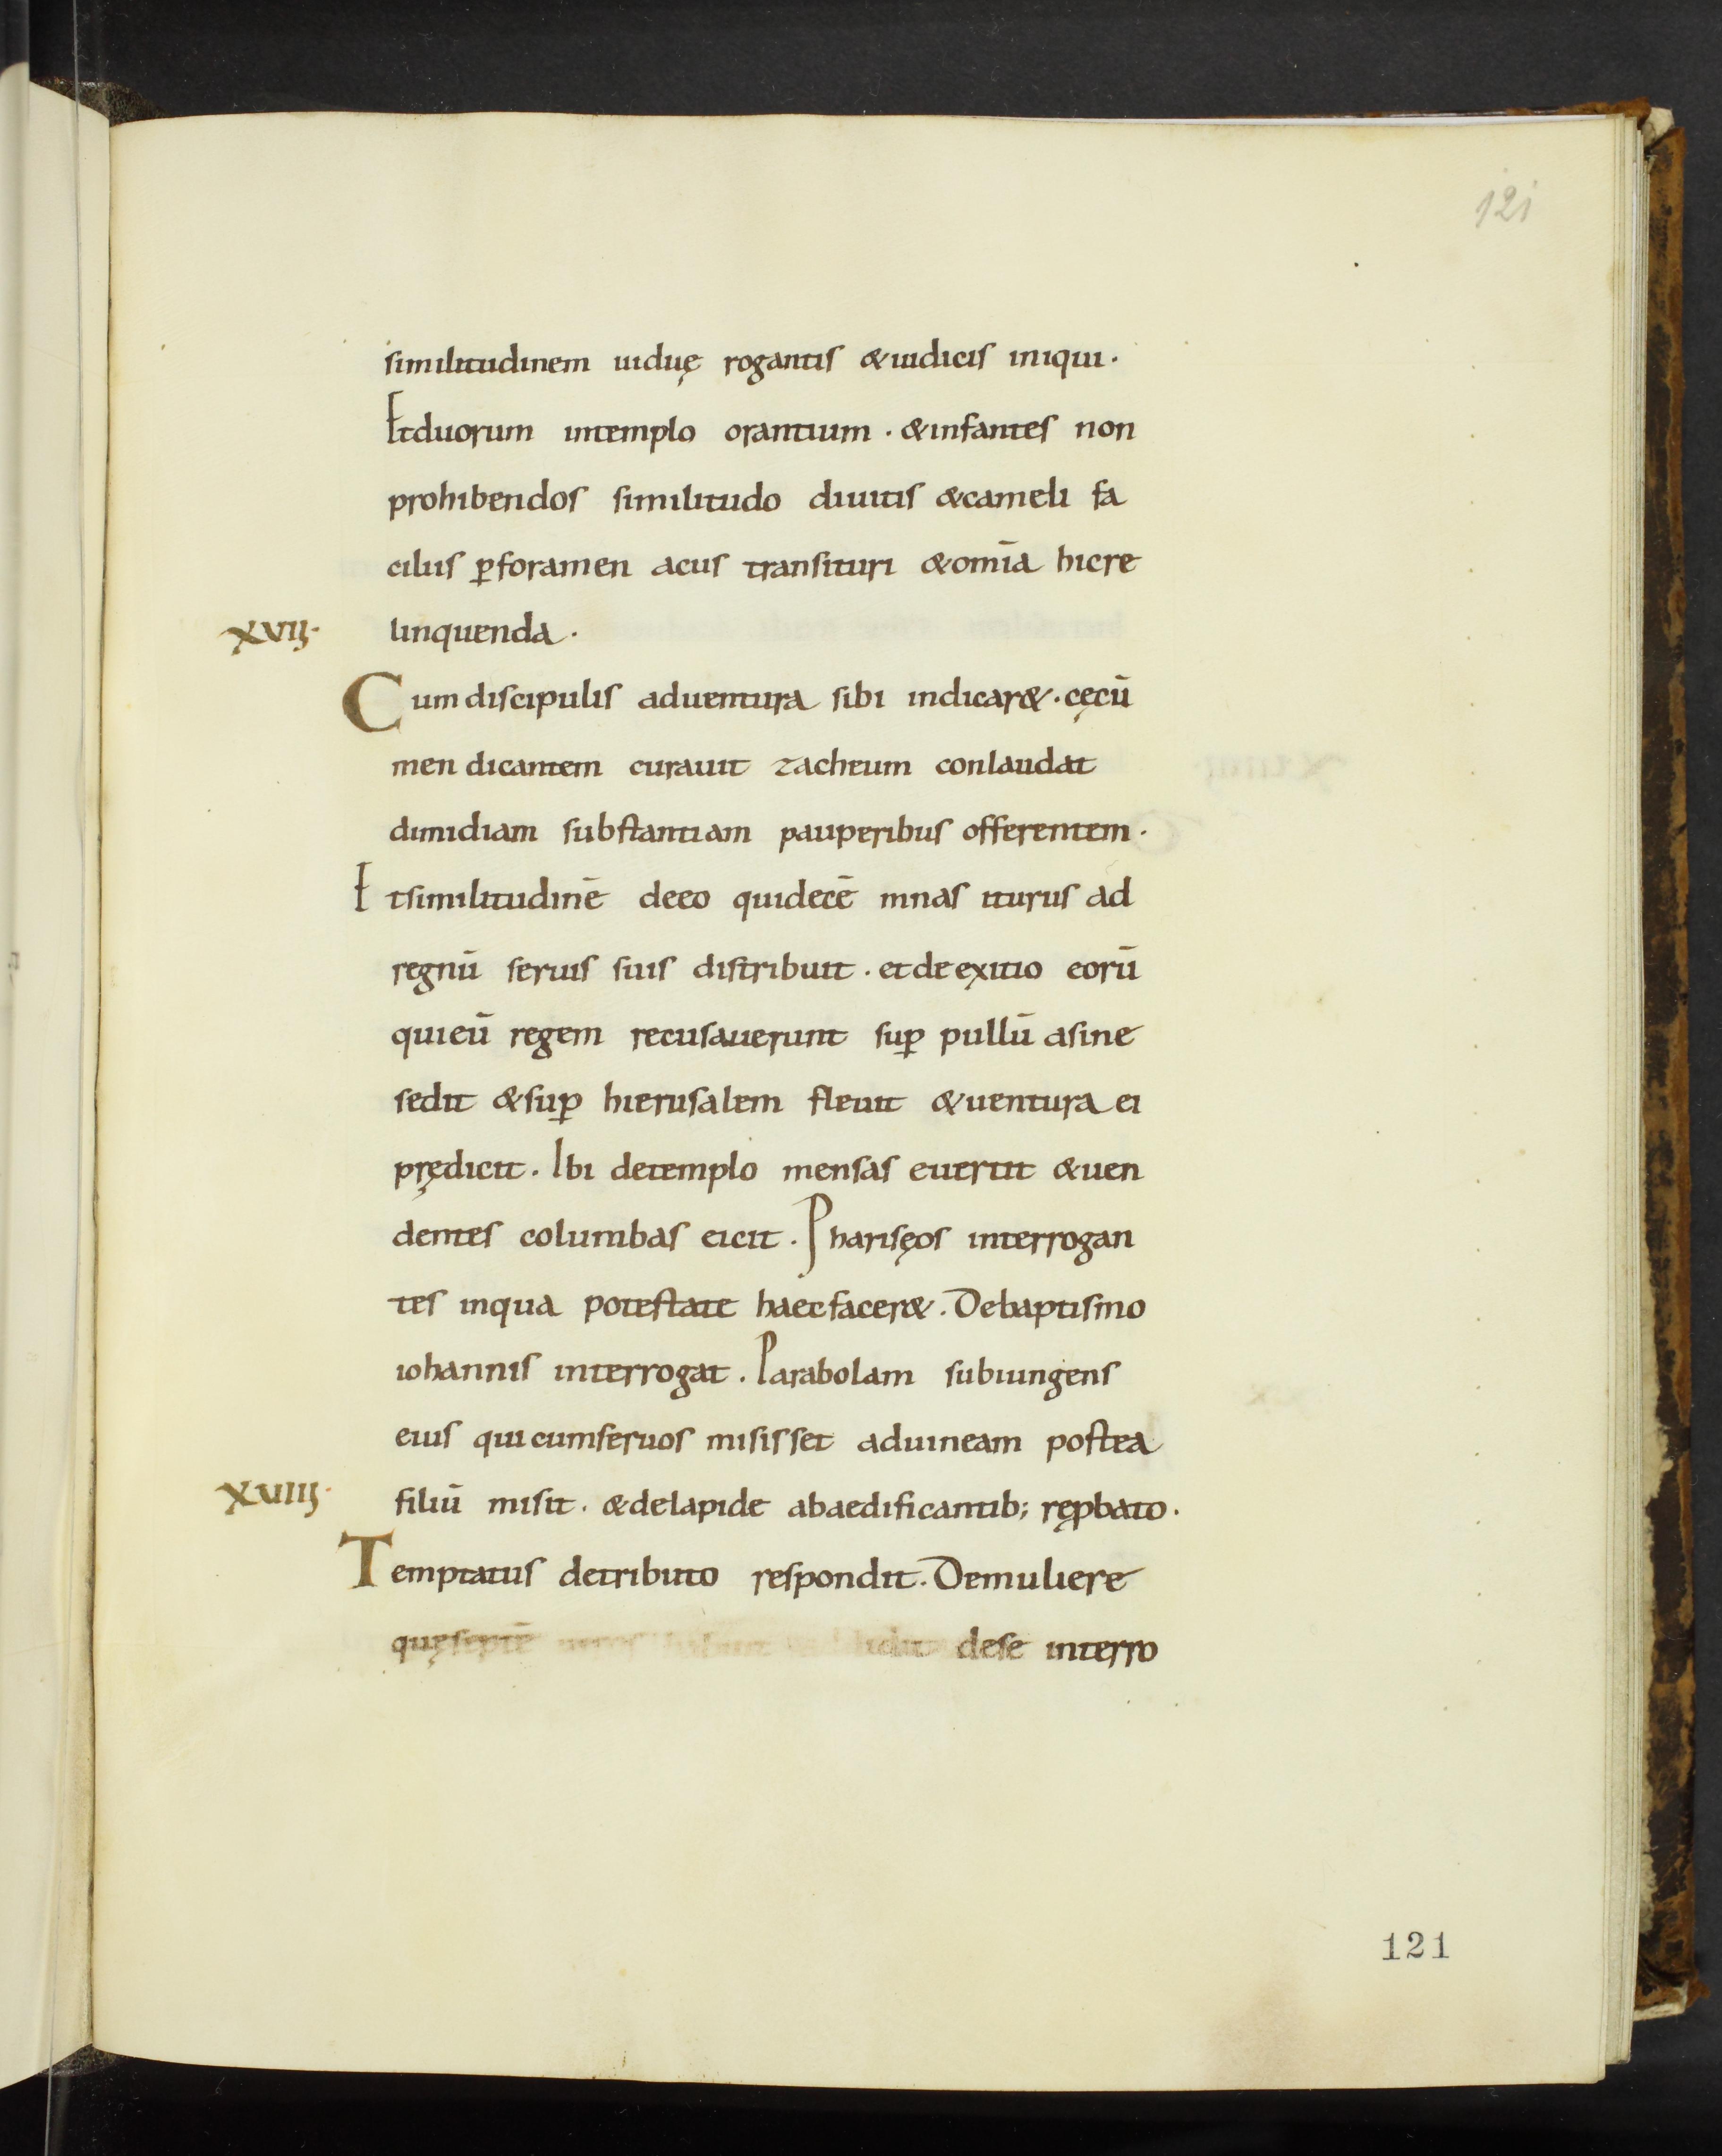 121
similitudinem uiduę rogantis &iudicis iniqui.
Etduorum intemplo orantium. &infantes non
prohibendos similitudo diuitis &cameli fa
cilius ꝑforamen acus transituri &om̄ia hicre
XVII. linquenda.
Cum discipulis aduentura sibi indicar&. cęcū
men dicantem curauit zacheum conlaudat
dimidiam substantiam pauperibus offerentem.
Et similitudinē deeo quidecē mnas iturus ad
regnū seruis suis distribuit. et de exitio eorū
quieū regem recusauerunt suꝑ pullū asine
sedit &suꝑ hierusalem fleuit &uentura ei
prędicit. Ibi detemplo mensas euertit &uen
dentes columbas eicit. Pharisęos interrogan
tes inqua potestate haecfacer&. Debaptismo
iohannis interrogat. Parabolam subiungens
eius quicumseruos misisset aduineam postea
XVIII. filiū misit. &delapide abaedificantib; ręꝓbato.
Temptatus detributo respondit. Demuliere
quęseptē uiros dese interro
121